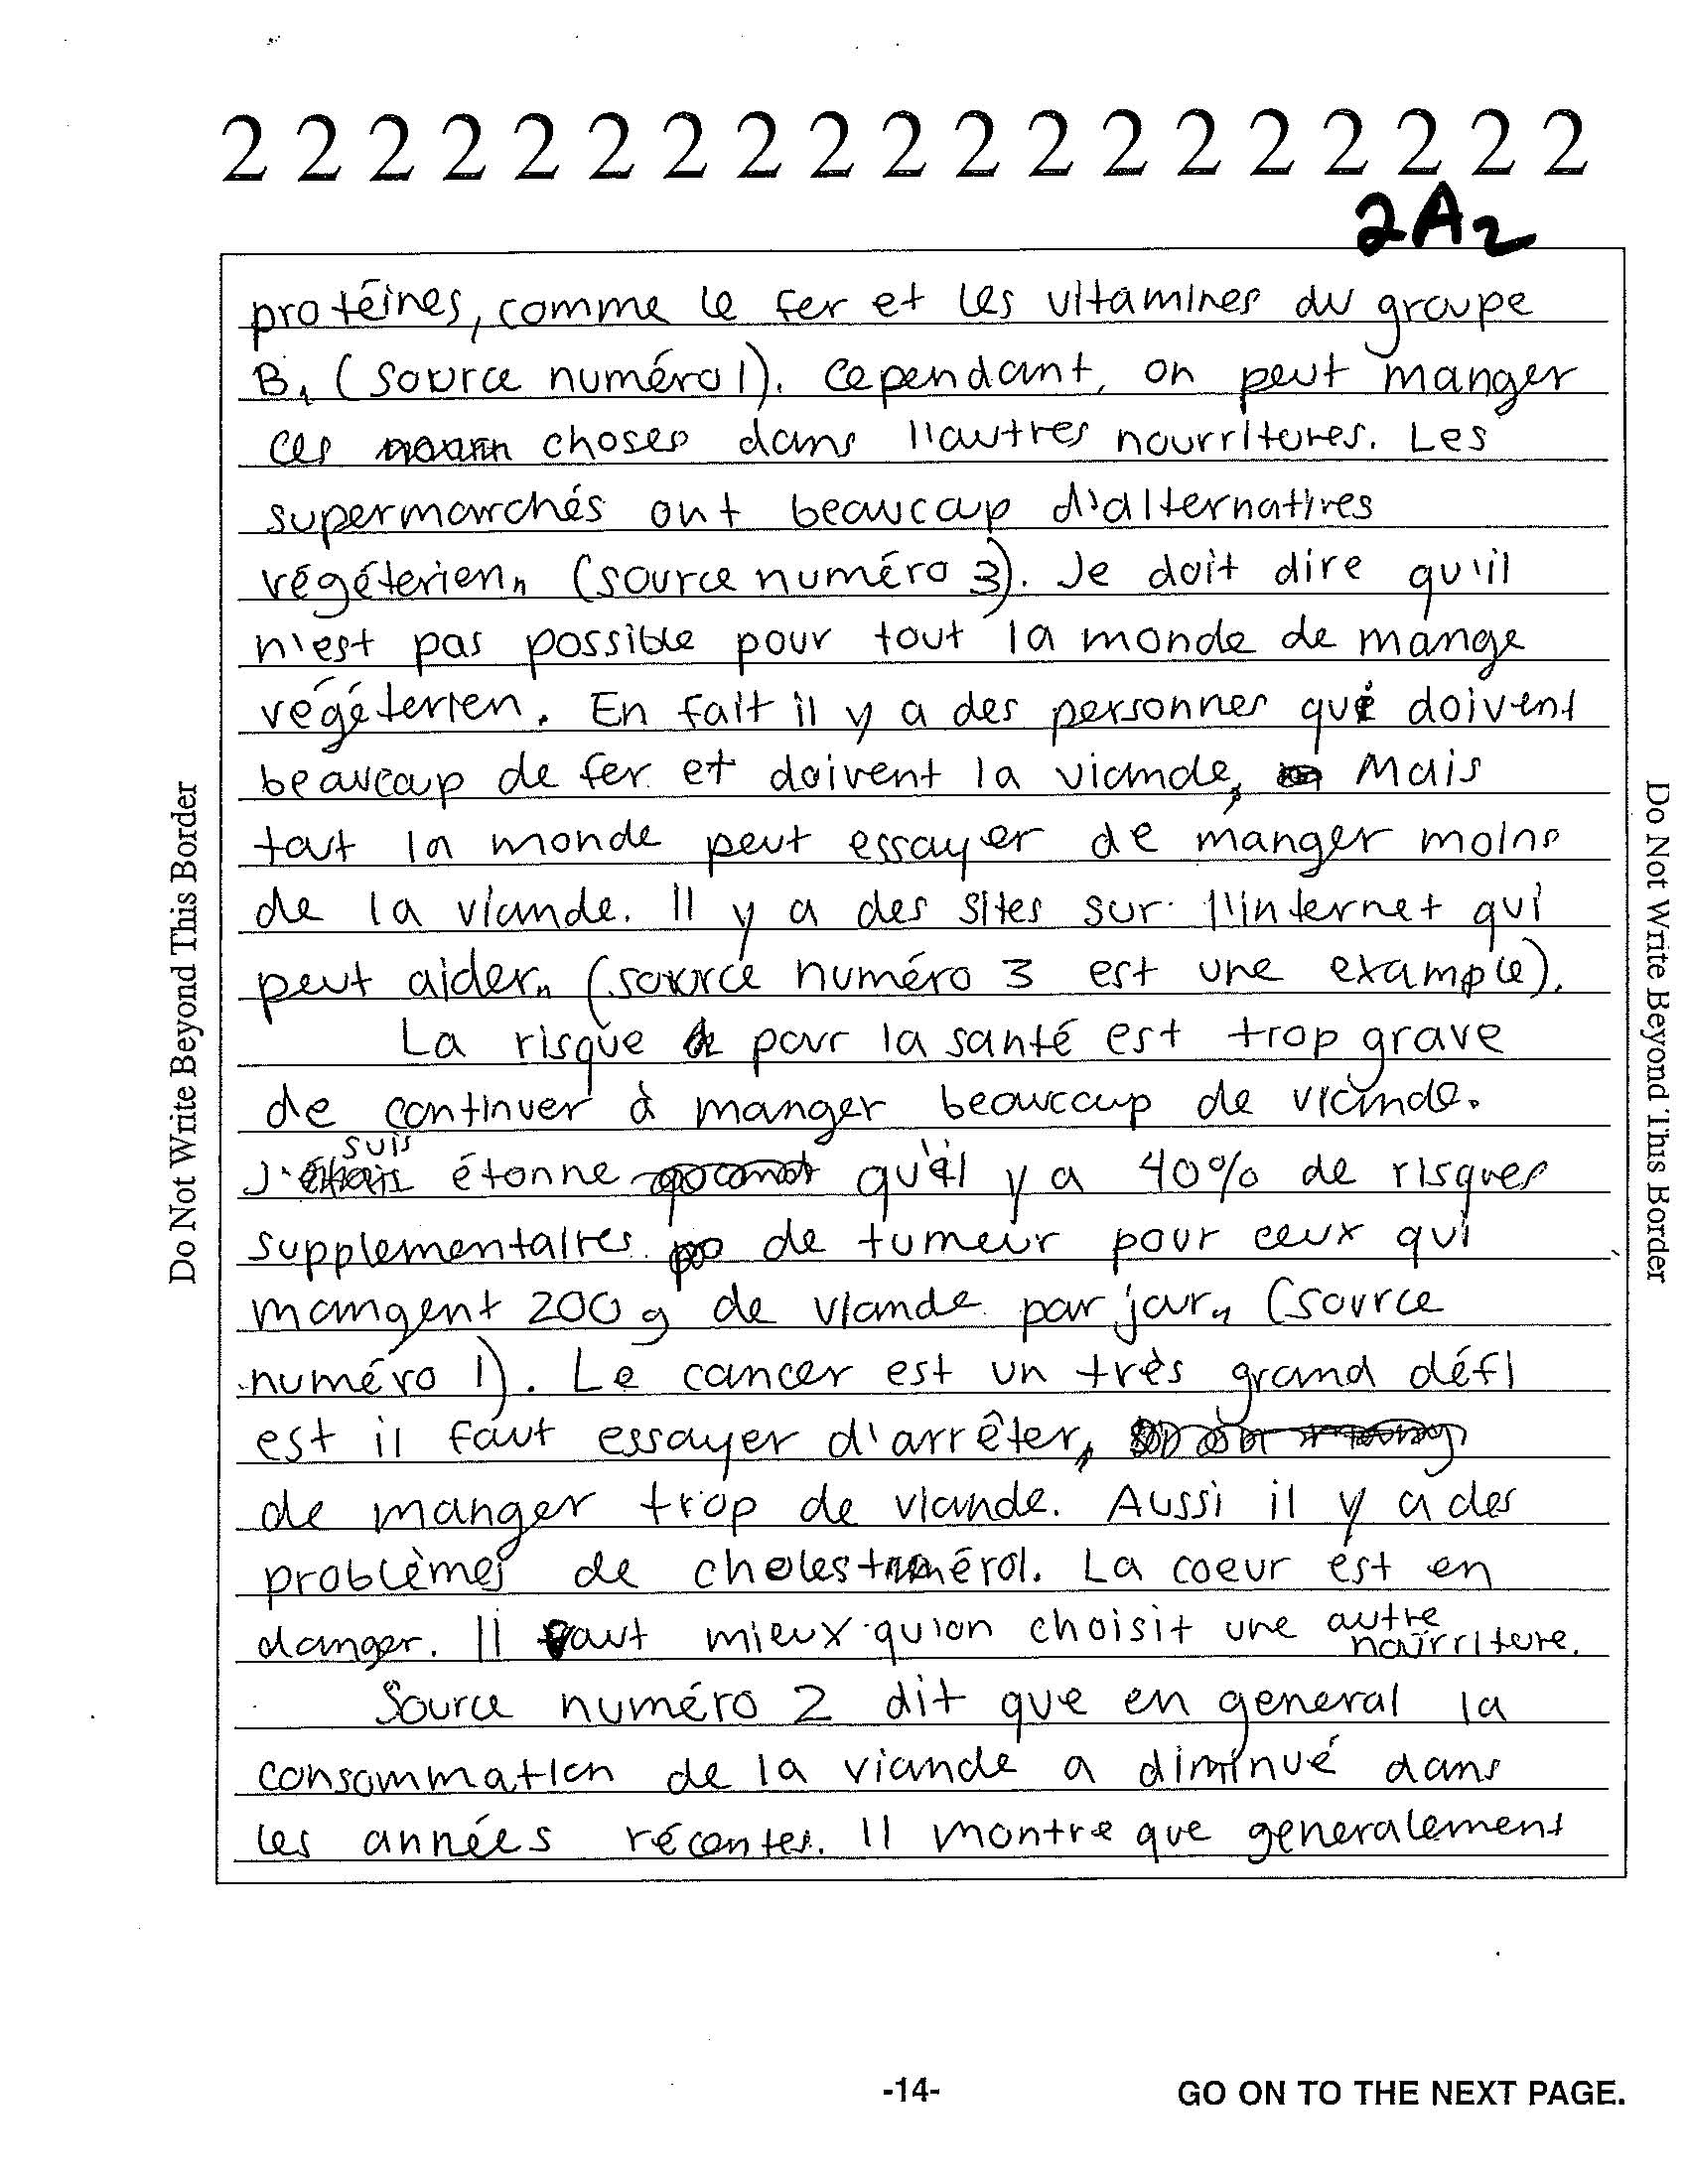 2 2 2 2 2 2 2 2 2 2 2 2 2 2 2 2 2 2 2
2A2
protéines, comme le fer et les vitamines du groupe
B, (source numéro 1). Cependant, on peut manger
ces choses dans l'autres nourritures. Les
supermarchés ont beaucoup d'alternatives
végéterien, (source numéro 3). Je doit dire qu'il
n'est pas possible pour tout la monde de mange
végéterien. En fait il y a des personnes qui doivent
beaucoup de fer et doivent la viande, Mais
tout la monde peut essayer de manger moins
de la viande. Il y a des sites sur l'internet qui
peut aider, (source numéro 3 est une example).
La risque pour la santé est trop grave
de continuer à manger beaucoup de viande.
J' suis étonne qu'il y a 40% de risques
supplementaires de tumeur pour ceux qui
mangent 200 g de viande par jour, (source
numéro 1). Le cancer est un très grand défi
est il faut essayer d'arrêter,
de manger trop de viande. Aussi il y a des
problèmes de cholestérol. La coeur est en
danger. Il vaut mieux qu'on choisit une autre nourriture.
Source numéro 2 dit que en general la
consommation de la viande a diminué dans
les années récentes. Il montre que generalement
Do Not Write Beyond This Border
Do Not Write Beyond This Border
-14-
GO ON TO THE NEXT PAGE.